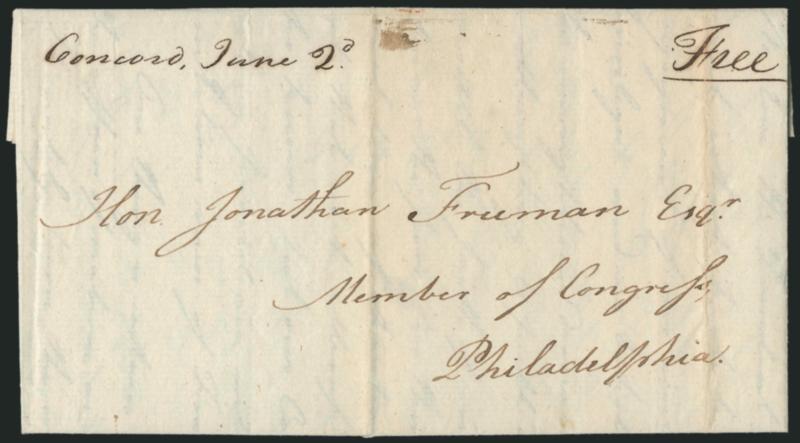 Concord, June 2d.
Free
Hon. Jonathan Freeman Esqr.
Member of Congress,
Philadelphia.